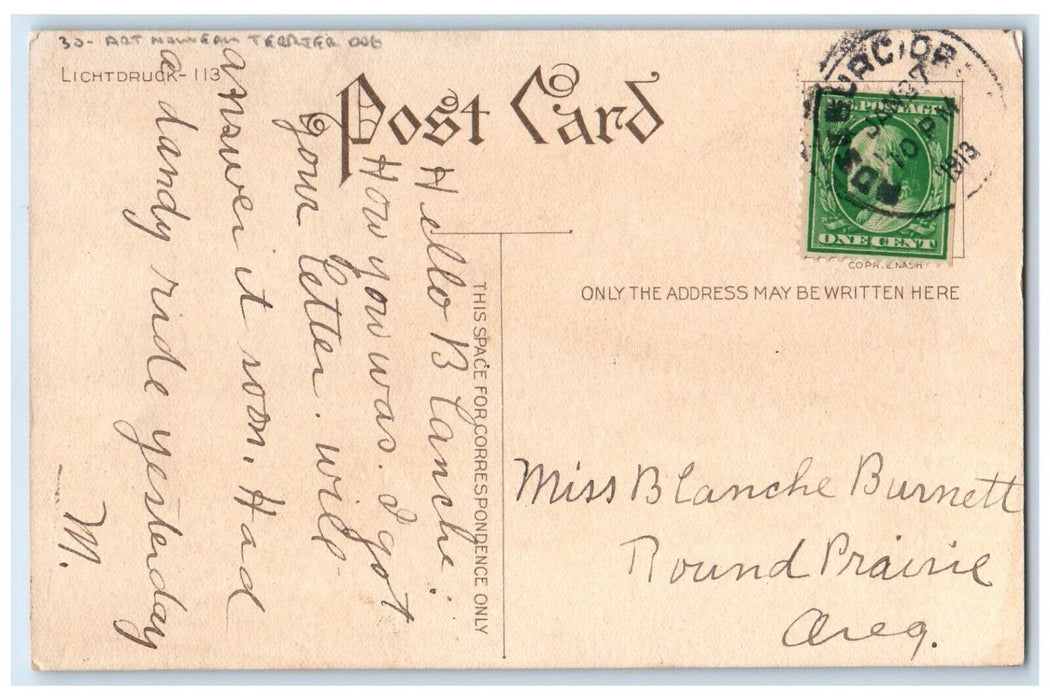 30- ART NOUVEAU TERRIER DOG
LICHTDRUCK-113
Post Card
ROSEBURG, OR
JAN 27
10 PM
1913
U.S. POSTAGE
ONE CENT
COPR. E. NASH
ONLY THE ADDRESS MAY BE WRITTEN HERE
THIS SPACE FOR CORRESPONDENCE ONLY
Hello Blanche:
How you was. I got
your letter. will
answer it soon. Had
a dandy ride yesterday
M.
Miss Blanche Burnett
Round Prairie
Oreg.